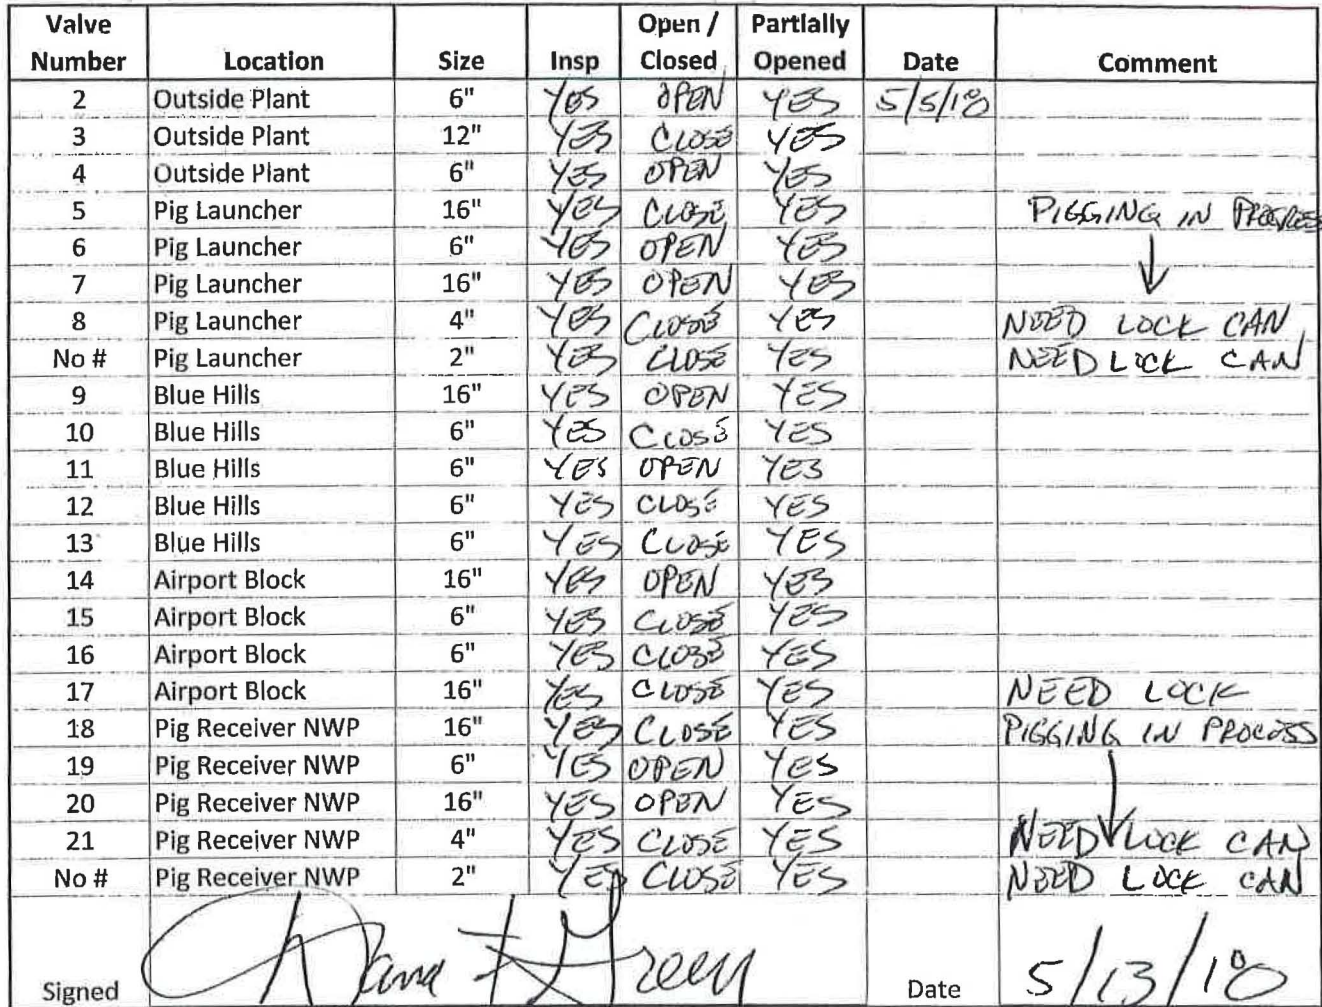 Valve Number Location Size Insp Open / Closed Partially Opened Date Comment
2 Outside Plant 6" YES OPEN YES 5/5/18
3 Outside Plant 12" YES CLOSE YES
4 Outside Plant 6" YES OPEN YES
5 Pig Launcher 16" YES CLOSE YES PIGGING IN PROGRESS
6 Pig Launcher 6" YES OPEN YES
7 Pig Launcher 16" YES OPEN YES
8 Pig Launcher 4" YES CLOSE YES NEED LOCK CAN
No # Pig Launcher 2" YES CLOSE YES NEED LOCK CAN
9 Blue Hills 16" YES OPEN YES
10 Blue Hills 6" YES CLOSE YES
11 Blue Hills 6" YES OPEN YES
12 Blue Hills 6" YES CLOSE YES
13 Blue Hills 6" YES CLOSE YES
14 Airport Block 16" YES OPEN YES
15 Airport Block 6" YES CLOSE YES
16 Airport Block 6" YES CLOSE YES
17 Airport Block 16" YES CLOSE YES NEED LOCK
18 Pig Receiver NWP 16" YES CLOSE YES PIGGING IN PROCESS
19 Pig Receiver NWP 6" YES OPEN YES
20 Pig Receiver NWP 16" YES OPEN YES
21 Pig Receiver NWP 4" YES CLOSE YES NEED LOCK CAN
No # Pig Receiver NWP 2" YES CLOSE YES NEED LOCK CAN
Signed Green Date 5/13/18